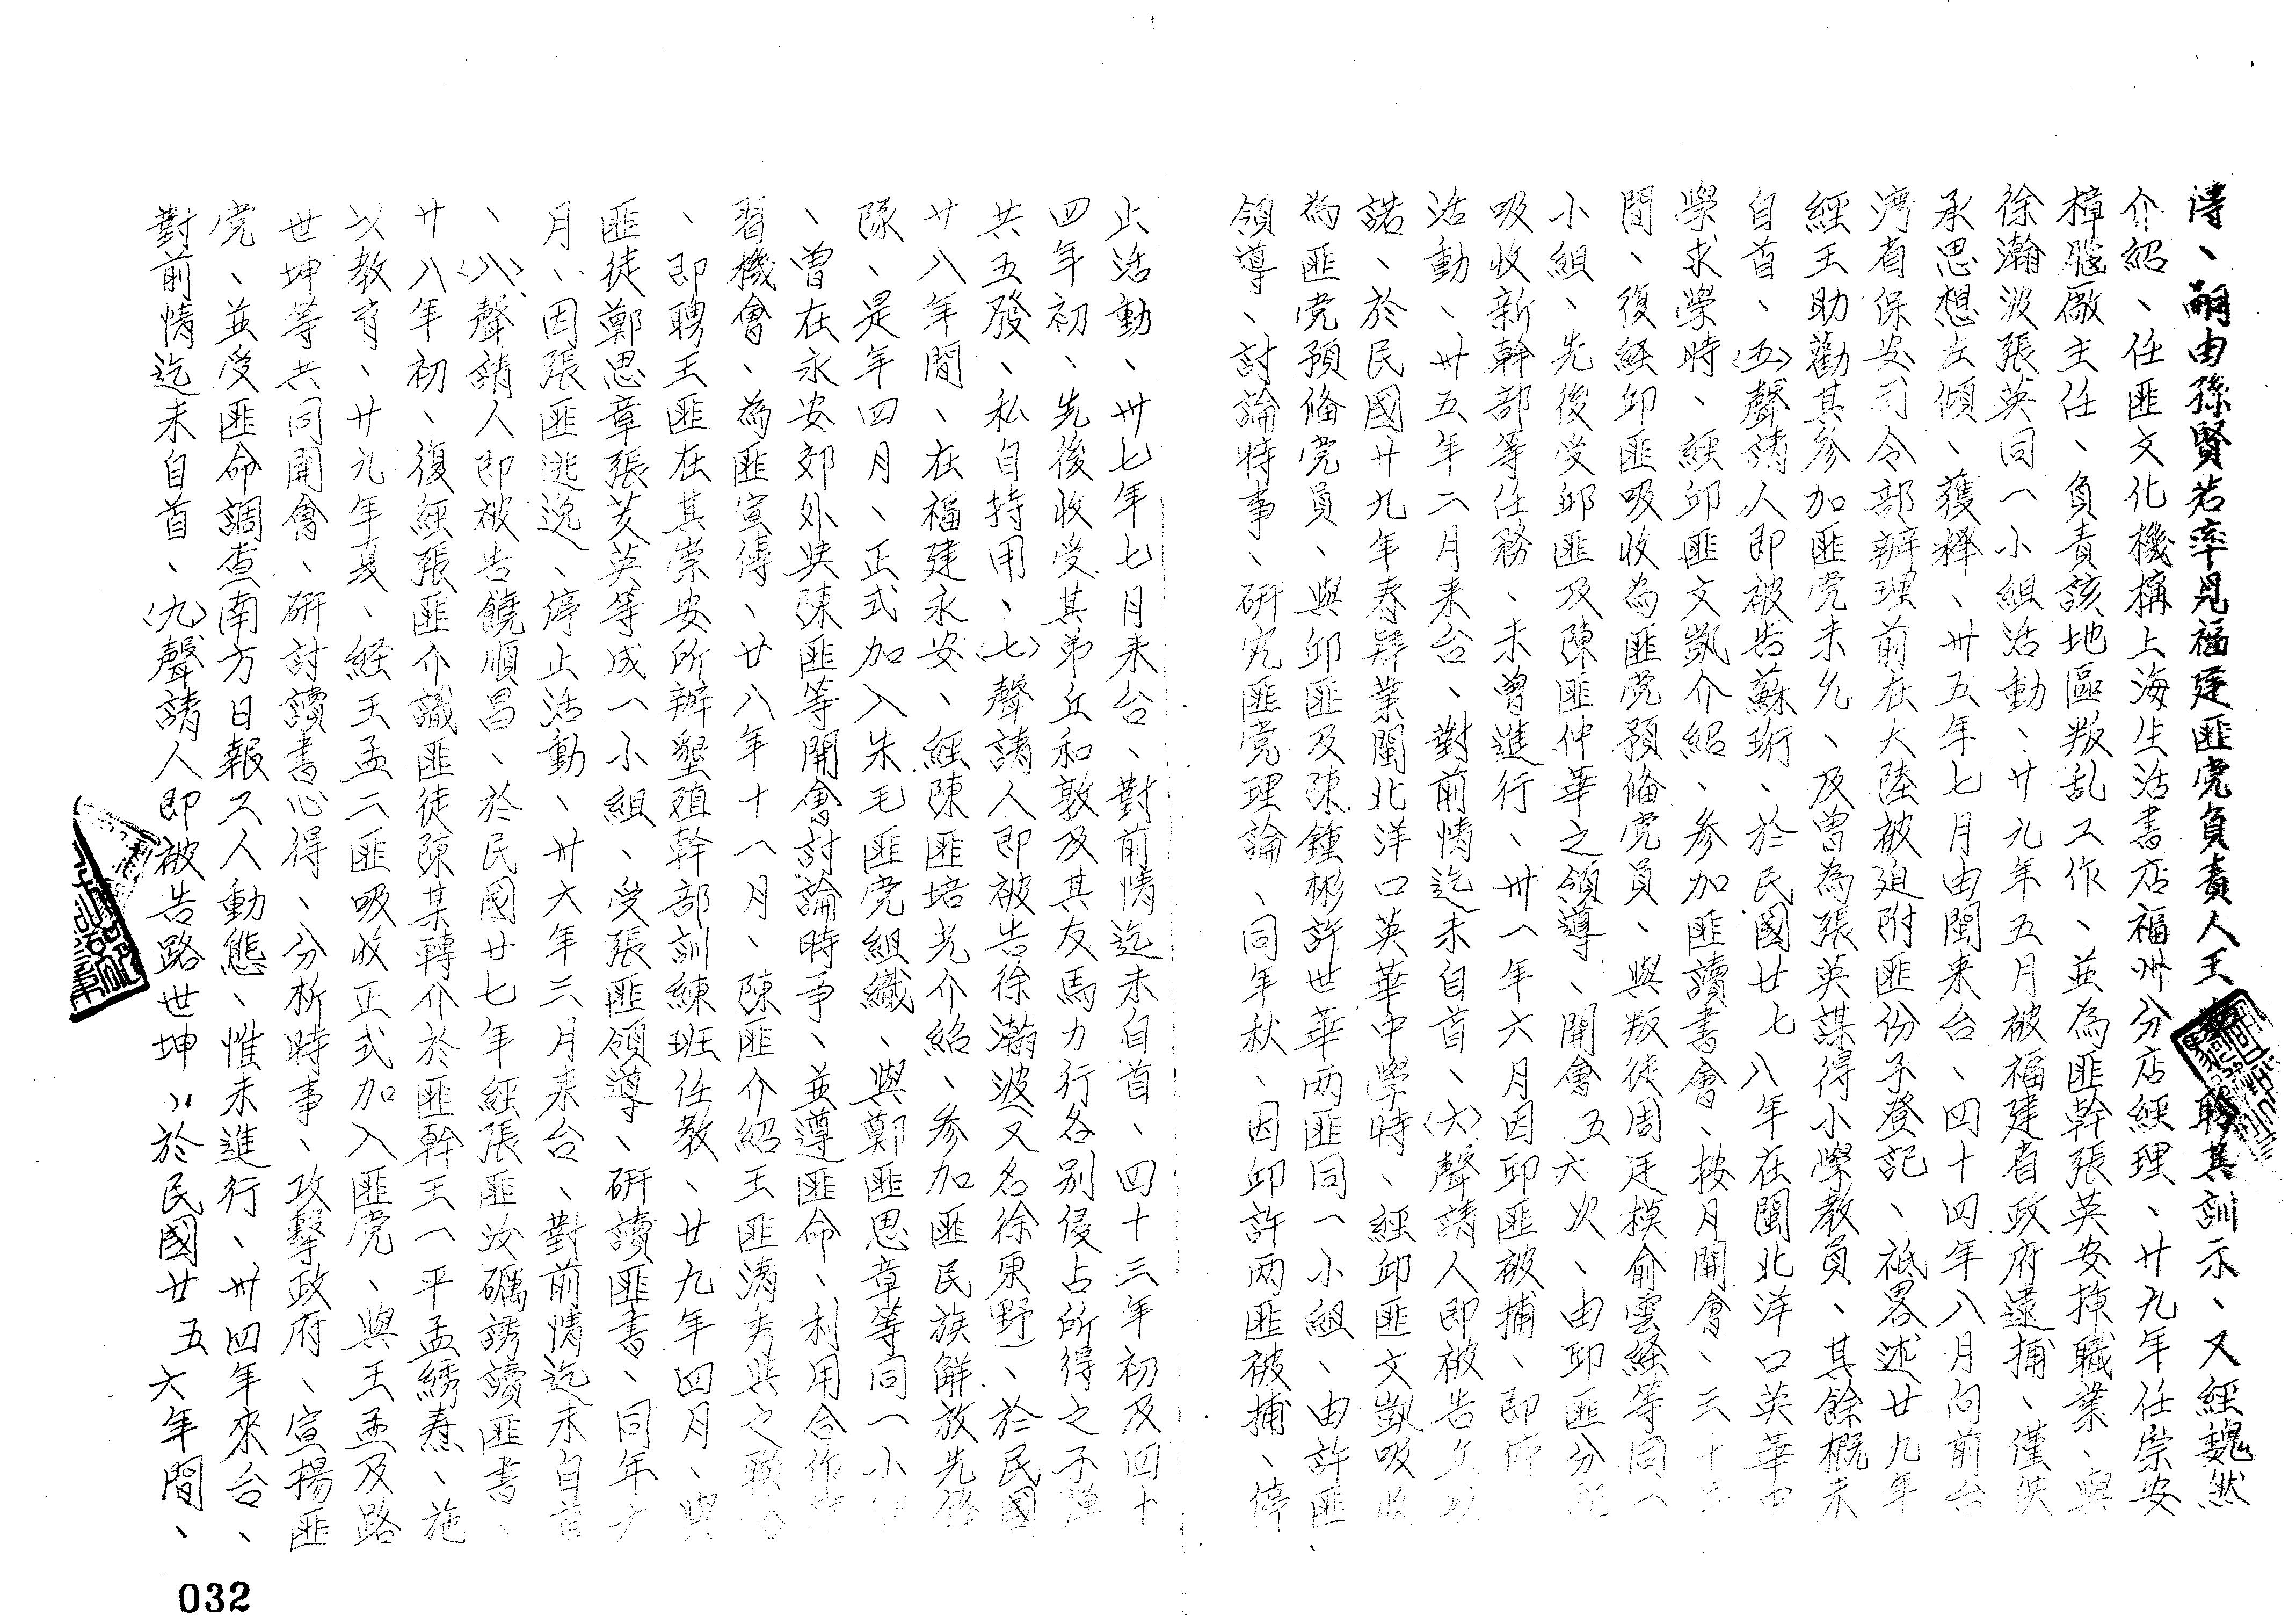 濤、嗣由孫賢若率見福廷匪党負責人王聆其訓示、又經魏然
介紹、任匪文化機構上海生活書店福州分店經理、廿九年任崇安
樟腦廠主任、負責該地區叛乱工作、並為匪幹張英安揷職業、與
徐瀚波張英同一小組活動、廿九年五月被福建省政府逮捕、僅供
承思想左傾、獲釋、卅五年七月由閩来台、四十四年八月向前台
湾省保安司令部辦理前在大陸被廹附匪份子登記、祗畧述廿九年
經王助勸其參加匪党未允、及曾為張英謀得小學教員、其餘概未
自首、〈五〉聲請人即被告蘇珩、於民國廿七八年在閩北洋口英華中
學求學時、經邱匪文凱介紹、參加匪讀書會、按月開會、三十三
間、復經邱匪吸收為匪党預備党員、與叛徒周廷模俞雲經等同一
小組、先後受邱匪及陳匪仲華之領導、開會五六次、由邱匪分配
吸收新幹部等任務、未曾進行、卅一年六月因邱匪被捕、即停
活動、卅五年二月来台、對前情迄未自首、〈六〉聲請人即被告丘
諾、於民國廿九年春肄業閩北洋口英華中學時、經邱匪文凱吸收
為匪党預備党員、與邱匪及陳鍾彬許世華兩匪同一小組、由許匪
領導、討論時事、研究匪党理論、同年秋、因邱許兩匪被捕、停
止活動、卅七年七月来台、對前情迄未自首、四十三年初及四十
四年初、先後收受其弟丘和敦及其友馬力行各别侵占所得之子彈
共五發、私自持用、〈七〉聲請人即被告徐瀚波（又名徐東野）、於民國
廿八年間、在福建永安、經陳匪培光介紹、參加匪民族解放先鋒
隊、是年四月、正式加入朱毛匪党組織、與鄭匪思章等同一小
、曾在永安郊外與陳匪等開會討論時爭、並遵匪命、利用合作
習機會、為匪宣傳、廿八年十一月、陳匪介紹王匪濤秀與之聯
、即聘王匪在其崇安所辦墾殖幹部訓練班任教、廿九年四月、與
匪徒鄭思章張芝英等成一小組、受張匪領導、研讀匪書、同年六
月、因張匪逃逸、停止活動、卅六年三月来台、對前情迄未自首
、〈八〉聲請人即被告饒順昌、於民國廿七年經張匪汝礪誘讀匪書、
廿八年初、復經張匪介識匪徒陳某轉介於匪幹王一平孟綉燾、施
以教育、廿九年夏、經王孟二匪吸收正式加入匪党、與王孟及路
世坤等共同開會、研討讀書心得、分析時事、攻擊政府、宣揚匪
党、並受匪命調查南方日報工人動態、惟未進行、卅四年來台、
對前情迄未自首、〈九〉聲請人即被告路世坤、於民國廿五六年間、
032